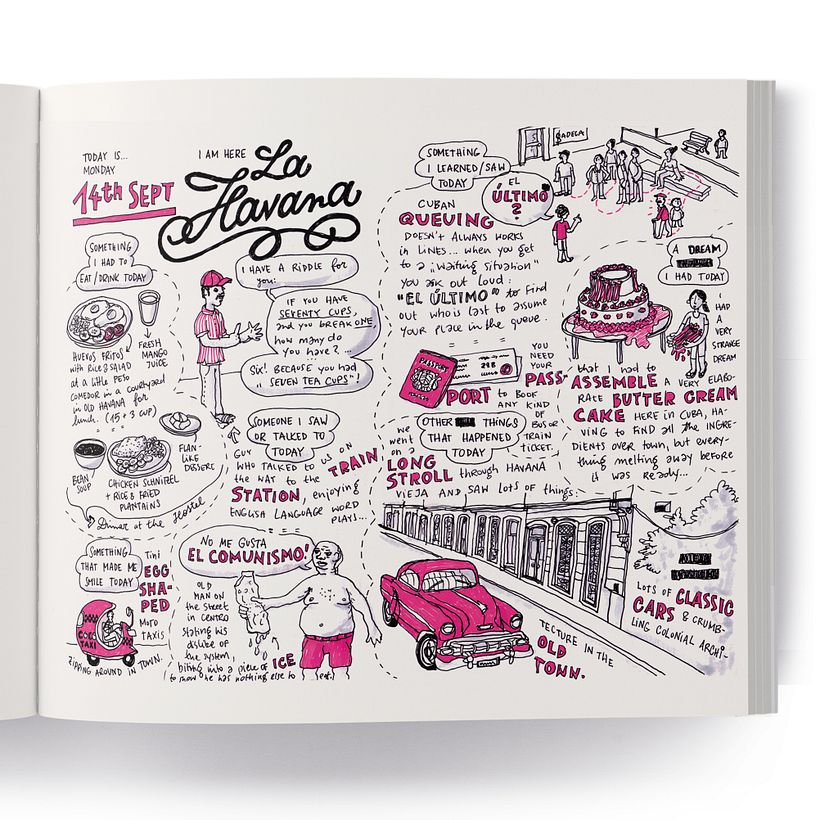 TODAY IS...
MONDAY
14th SEPT
I AM HERE
La
Havana
SOMETHING
I HAD TO
EAT/DRINK TODAY
HUEVOS FRITOS
with RICE & SALAD
at a little PESO
COMEDOR in a courtyard
in OLD HAVANA for
lunch. (45 + 3 CUP)
FRESH
MANGO
JUICE
BEAN
SOUP
CHICKEN SCHNITZEL
+ RICE & FRIED
PLANTAINS
FLAN-
LIKE
DESSERT
Dinner at the Hostel
SOMETHING
THAT MADE ME
SMILE TODAY
Tini
EGG
SHA-
PED
MOTO
TAXIS
COCO
TAXI
ZIPPING AROUND IN TOWN.
I HAVE A RIDDLE for
you:
IF YOU HAVE
SEVENTY CUPS,
and you BREAK ONE,
how many do
you have?...
SIX! BECAUSE you had
"SEVEN TEA CUPS"!
SOMEONE I SAW
OR TALKED TO
TODAY
GUY
WHO TALKED TO US ON
the WAY to the TRAIN
STATION, enjoying
ENGLISH LANGUAGE WORD
PLAYS...
NO ME GUSTA
EL COMUNISMO!
OLD
MAN ON
the street
in CENTRO
Stating his
dislike of
the system,
biting into a piece of ICE
to show he has nothing else to (eat.)
SOMETHING
I LEARNED/SAW
TODAY
CADECA
EL
ÚLTIMO
?
CUBAN
QUEUING
DOESN'T ALWAYS WORKS
in LINES... when you get
to a "waiting situation"
you ask out loud:
"EL ÚLTIMO" to find
out who is last to assume
your place in the queue.
PASSPORT
YOU
NEED
YOUR
PASS-
PORT to BOOK
ANY KIND
OF BUS OR
TRAIN
TICKET.
OTHER THINGS
THAT HAPPENED
TODAY
we
went
on a
LONG
STROLL through HAVANA
VIEJA AND SAW LOTS of things:
A DREAM
I HAD TODAY
I
HAD
A
VERY
STRANGE
DREAM
that I had to
ASSEMBLE A VERY ELABO-
RATE BUTTER CREAM
CAKE HERE in CUBA, HA-
VING to FIND all the INGRE-
DIENTS over town, but every-
thing melting away before
it was READY...
LOTS OF CLASSIC
CARS & CRUMB-
LING COLONIAL ARCHI-
TECTURE IN THE
OLD
TOWN.